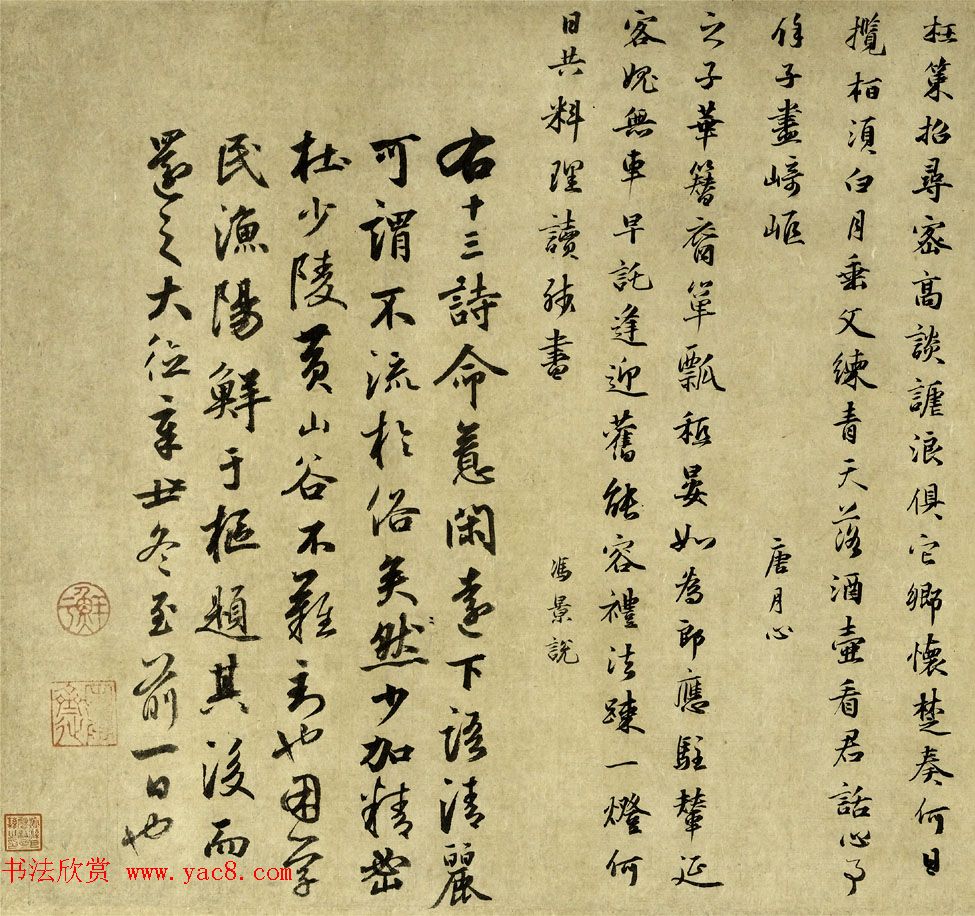 枉策招尋密高談謔浪俱它鄉懷楚奏何日
攬柏須白月垂文練青天落酒壺看君話心事
餘子盡崎嶇
唐月心
之子華簪裔簞瓢秪晏如為郎應駐輦延
客媿無車早託逢迎舊能容禮法踈一燈何
日共料理讀殘書
馮景說
右十三詩命意閑遠下語清麗
可謂不流於俗矣然少加精密
杜少陵黃山谷不難到也困學
民漁陽鮮于樞題其後而
還之大德辛丑冬至前一日也
鮮于
书法欣赏 www.yac8.com